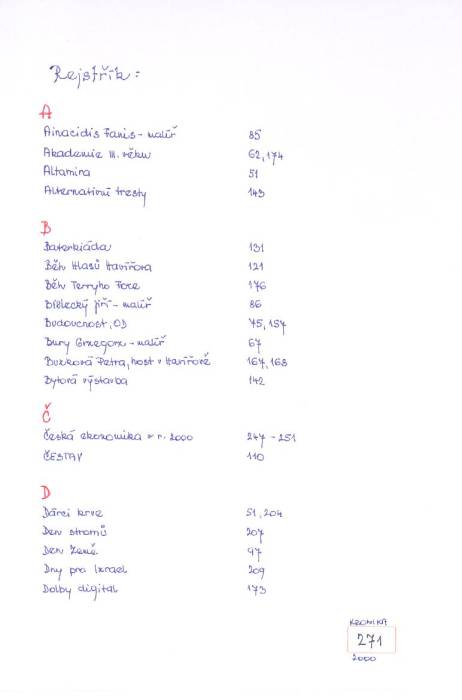 Rejstřík:
A
Ainacidis Fanis - malíř 85
Akademie III. věku 62, 174
Altamira 51
Alternativní tresty 143
B
Baterkiáda 131
Běh Hlasů Havířova 121
Běh Terryho Foxe 176
Bělecký Jiří - malíř 86
Budoucnost, OD 75, 157
Bury Grzegorz - malíř 67
Buzková Petra, host v Havířově 167, 168
Bytová výstavba 142
Č
Česká ekonomika v r. 2000 247 - 251
ČESTAV 110
D
Dárci krve 51, 204
Den stromů 207
Den Země 97
Dny pro Izrael 209
Dolby digital 173
KRONIKA
271
2000